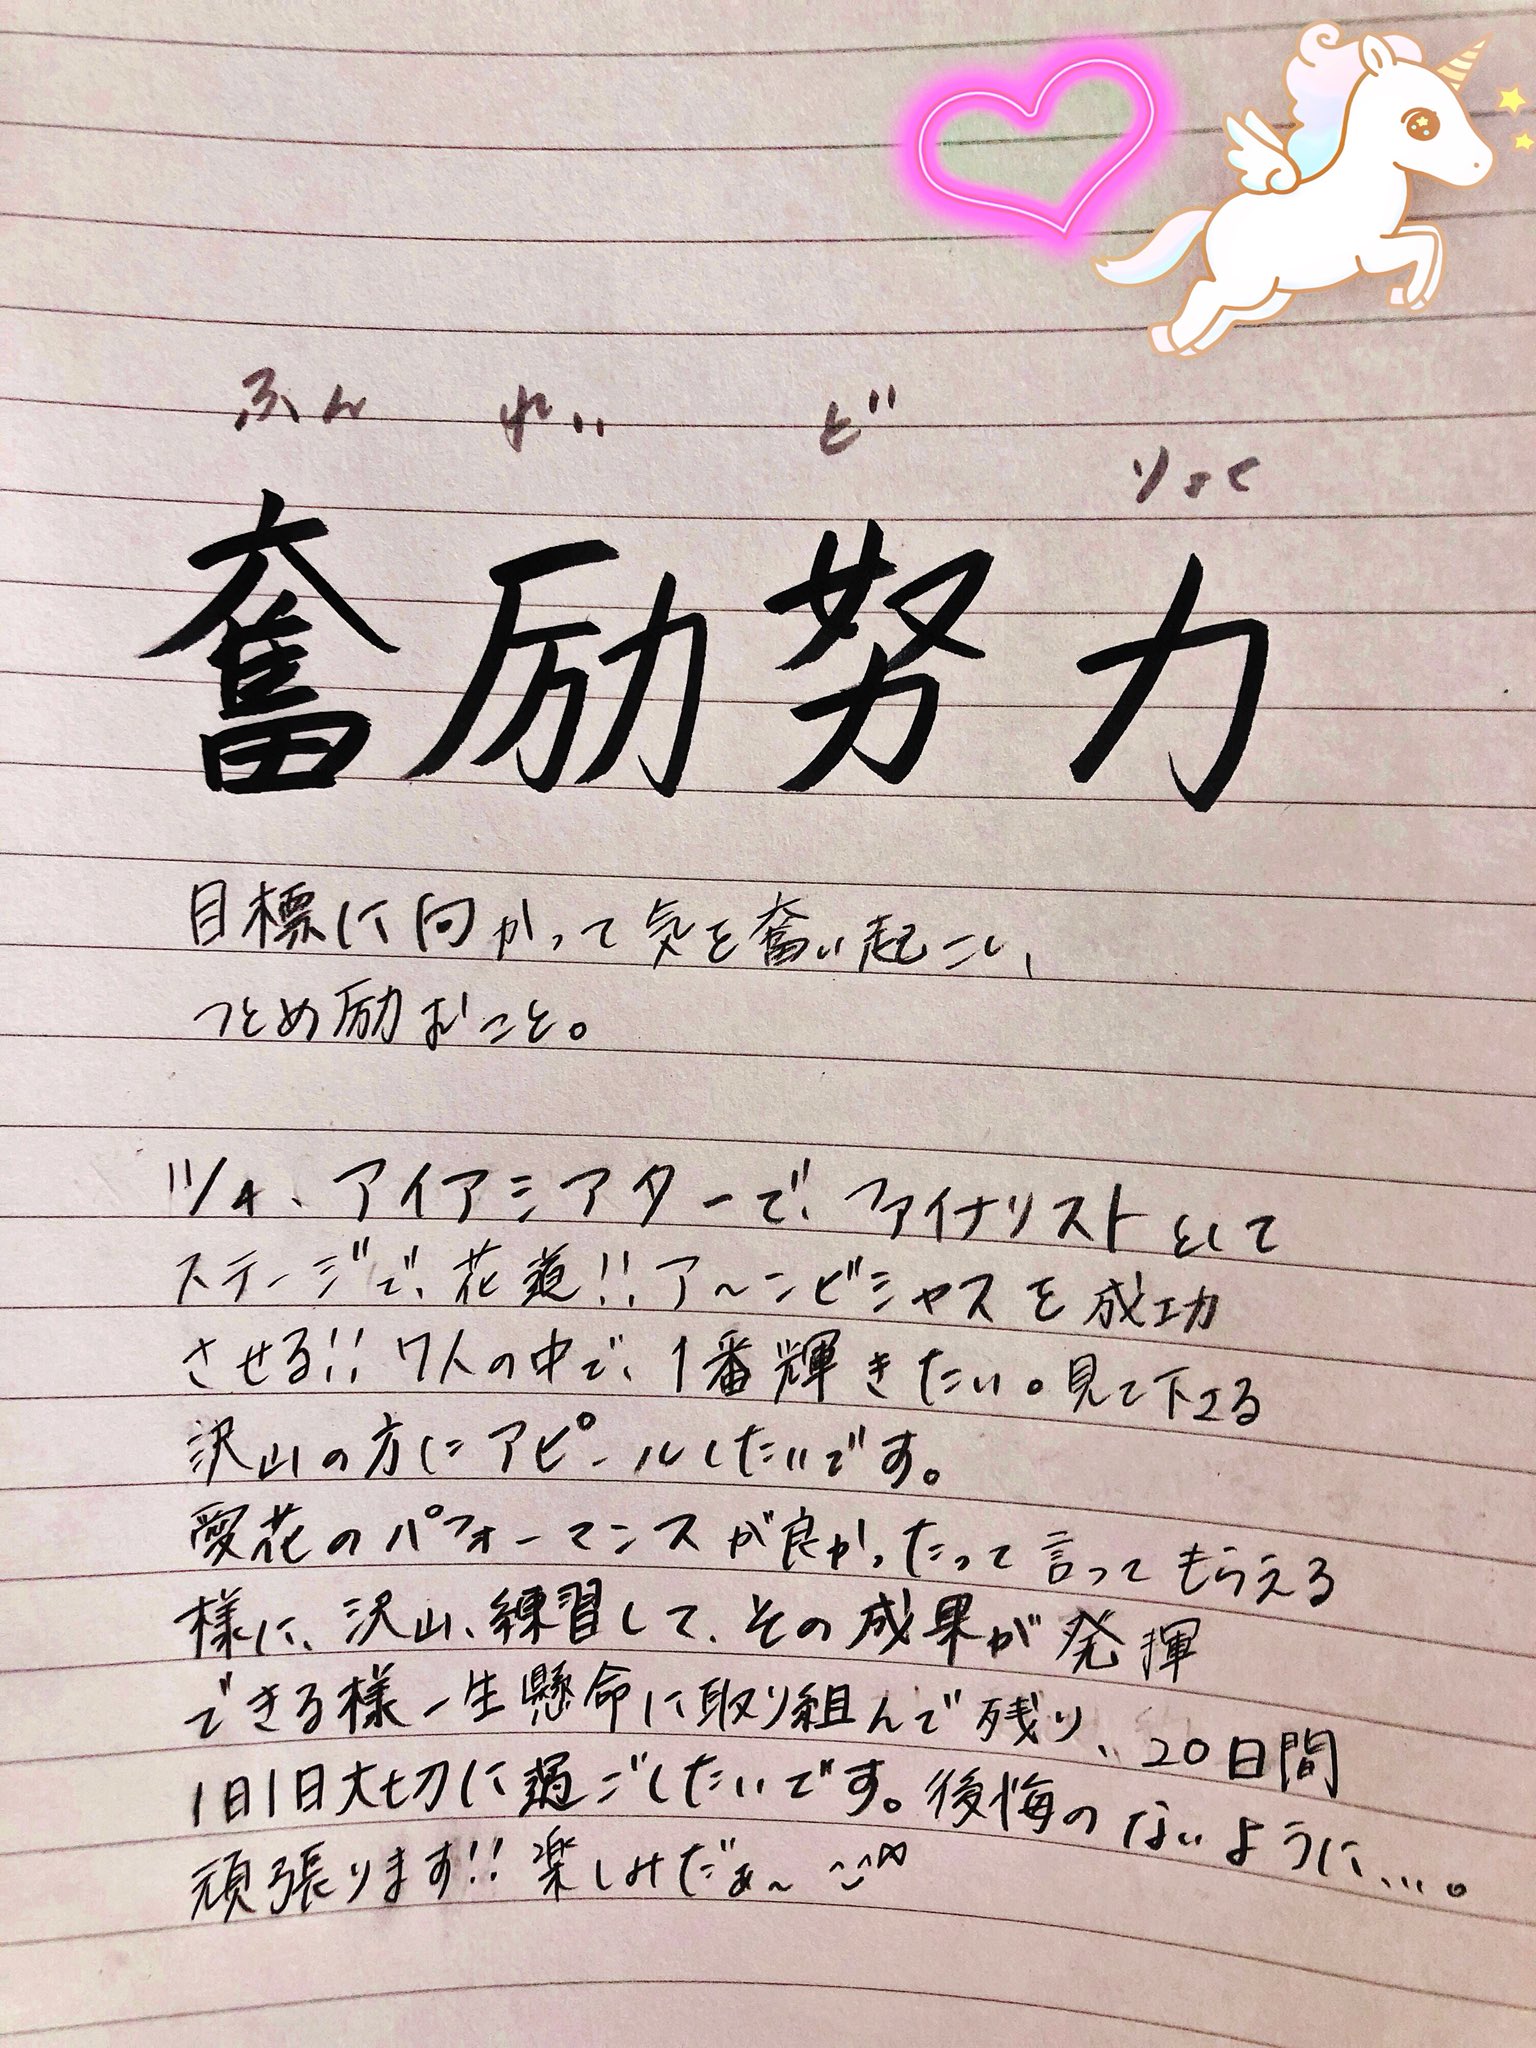 ふん れい ど りょく
奮励努力
目標に向かって気を奮い起こし、
つとめ励むこと。
11/4、アイアシアターで、ファイナリストとして
ステージで、花道!!ア〜ンビシャスを成功
させる!!7人の中で、1番輝きたい。見て下さる
沢山の方にアピールしたいです。
愛花のパフォーマンスが良かったって言ってもらえる
様に、沢山、練習して、その成果が発揮
できる様一生懸命に取り組んで残り、20日間
1日1日大切に過ごしたいです。後悔のないように、...。
頑張ります!!楽しみだぁ〜